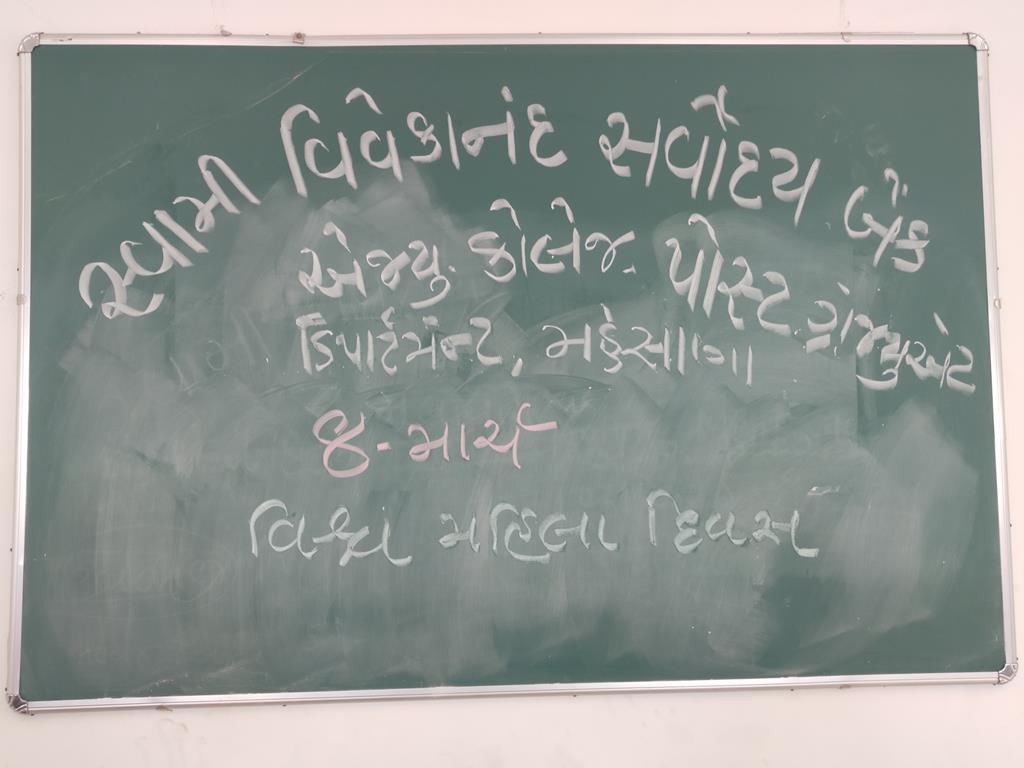 સ્વામી વિવેકાનંદ સર્વોદય બેંક
એજ્યુ. કોલેજ, પોસ્ટ ગ્રેજ્યુએટ
ડિપાર્ટમેન્ટ, મહેસાણા
૪-માર્ચ
વિશ્વ મહિલા દિવસ